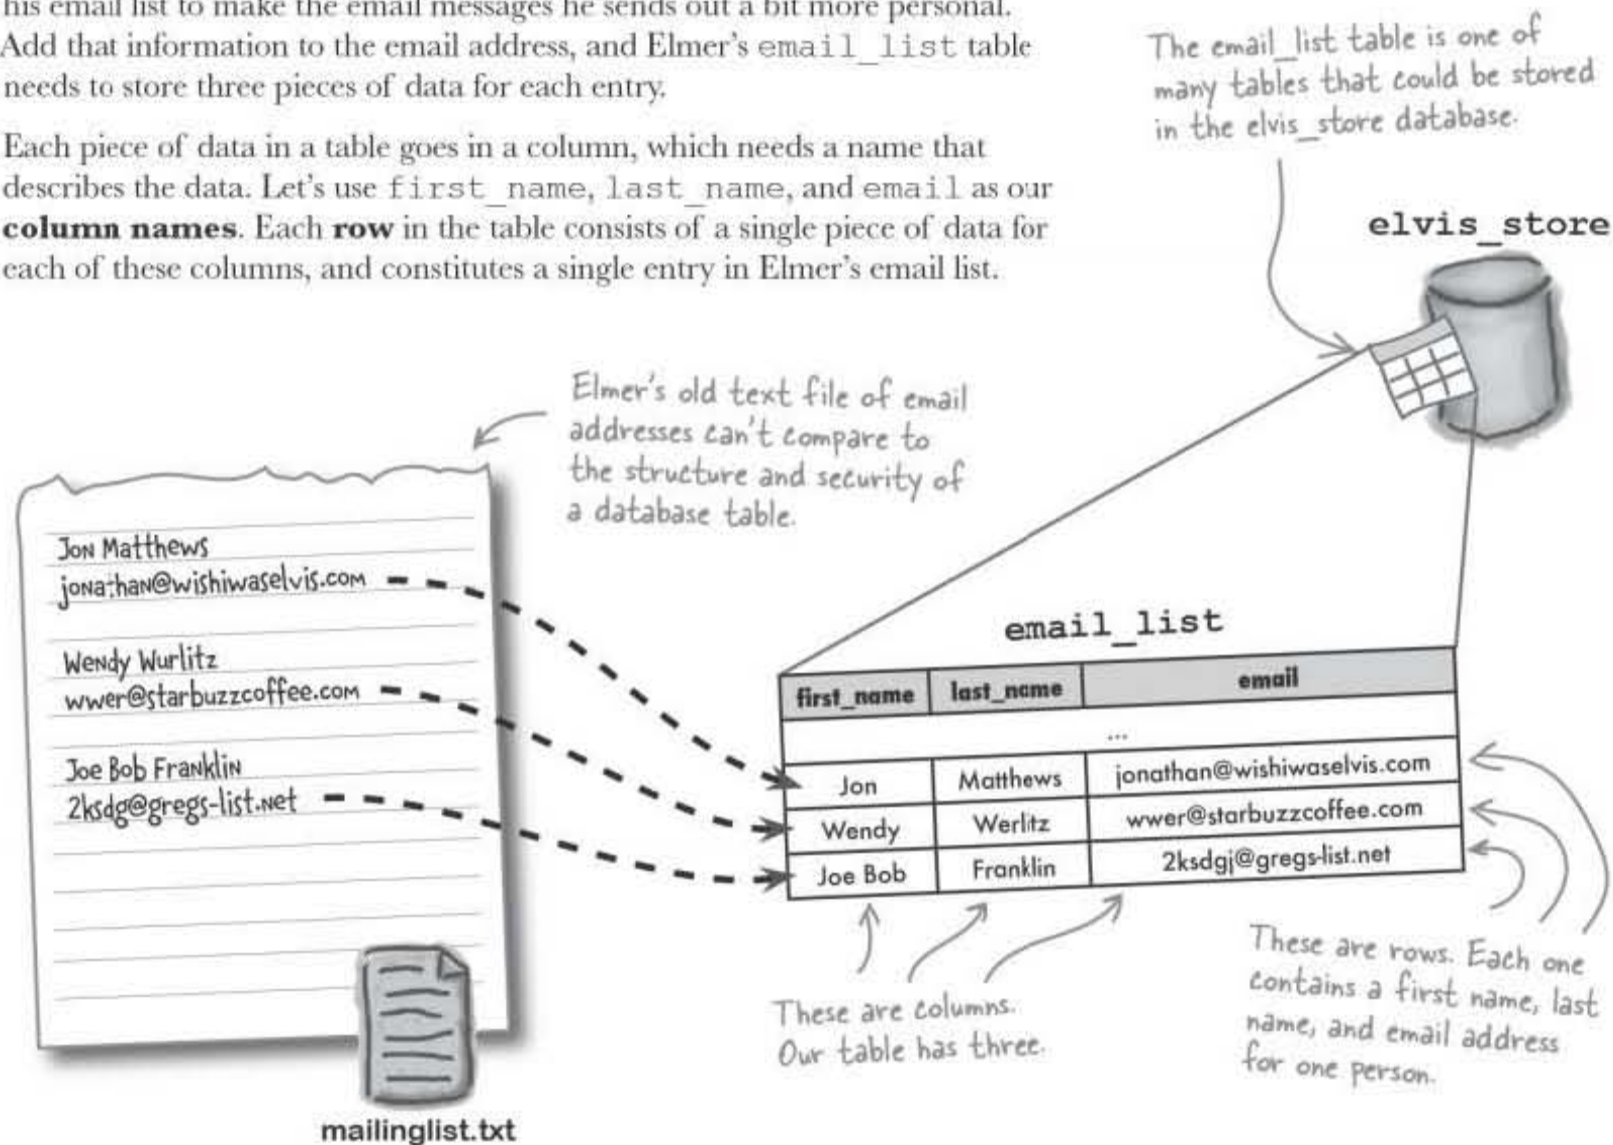 his email list to make the email messages he sends out a bit more personal.
Add that information to the email address, and Elmer's email_list table
needs to store three pieces of data for each entry.
Each piece of data in a table goes in a column, which needs a name that
describes the data. Let's use first_name, last_name, and email as our
column names. Each row in the table consists of a single piece of data for
each of these columns, and constitutes a single entry in Elmer's email list.
The email_list table is one of
many tables that could be stored
in the elvis_store database.
elvis_store
Elmer's old text file of email
addresses can't compare to
the structure and security of
a database table.
Jon Matthews
jonathan@wishiwaselvis.com
Wendy Wurlitz
wwer@starbuzzcoffee.com
Joe Bob Franklin
2ksdg@gregs-list.net
mailinglist.txt
email_list
first_name last_name email
...
Jon Matthews jonathan@wishiwaselvis.com
Wendy Werlitz wwer@starbuzzcoffee.com
Joe Bob Franklin 2ksdgj@gregs-list.net
These are columns.
Our table has three.
These are rows. Each one
contains a first name, last
name, and email address
for one person.